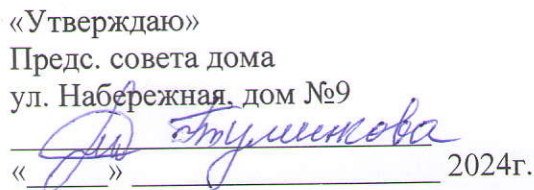 «Утверждаю»
Предс. совета дома
ул. Набережная, дом №9
Тулинкова
«______» ______________________ 2024г.